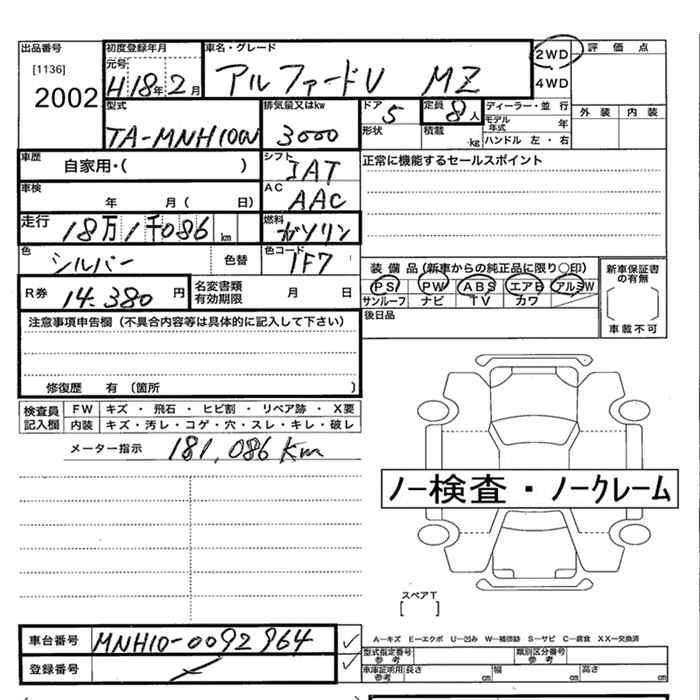 出品番号 初度登録年月 車名・グレード 2WD 評価点
[1136] 元号 H18年2月 アルファードV MZ 4WD
2002
型式 排気量又はkw ドア 5 定員 8人 ディーラー・並行 外装 内装
TA-MNH10W 3000 形状 積載 kg モデル年式 年
ハンドル 左・右
車歴 自家用・( ) シフト IAT 正常に機能するセールスポイント
車検 年 月( 日) AC AAC
走行 18万1千086km 燃料 ガソリン
色 シルバー 色替 色コード 1F7 装備品(新車からの純正品に限り○印) 新車保証書の有無
R券 14.380円 名変書類有効期限 月 日 PS PW ABS エアB アルミW
サンルーフ ナビ TV カワ
後日品 車載不可
注意事項申告欄(不具合内容等は具体的に記入して下さい)
修復歴 有(箇所 )
検査員記入欄 FW キズ・飛石・ヒビ割・リペア跡・X要
内装 キズ・汚レ・コゲ・穴・スレ・キレ・破レ
メーター指示 181,086 Km
ノー検査・ノークレーム
スペアT
[ ]
車台番号 MNH10-0092964 A-キズ E-エクボ U-凹み W-補修跡 S-サビ C-腐食 XX-交換済
登録番号 型式指定番号 参考 類別区分番号 参考
車庫証明用 参考 長さ cm 幅 cm 高さ cm